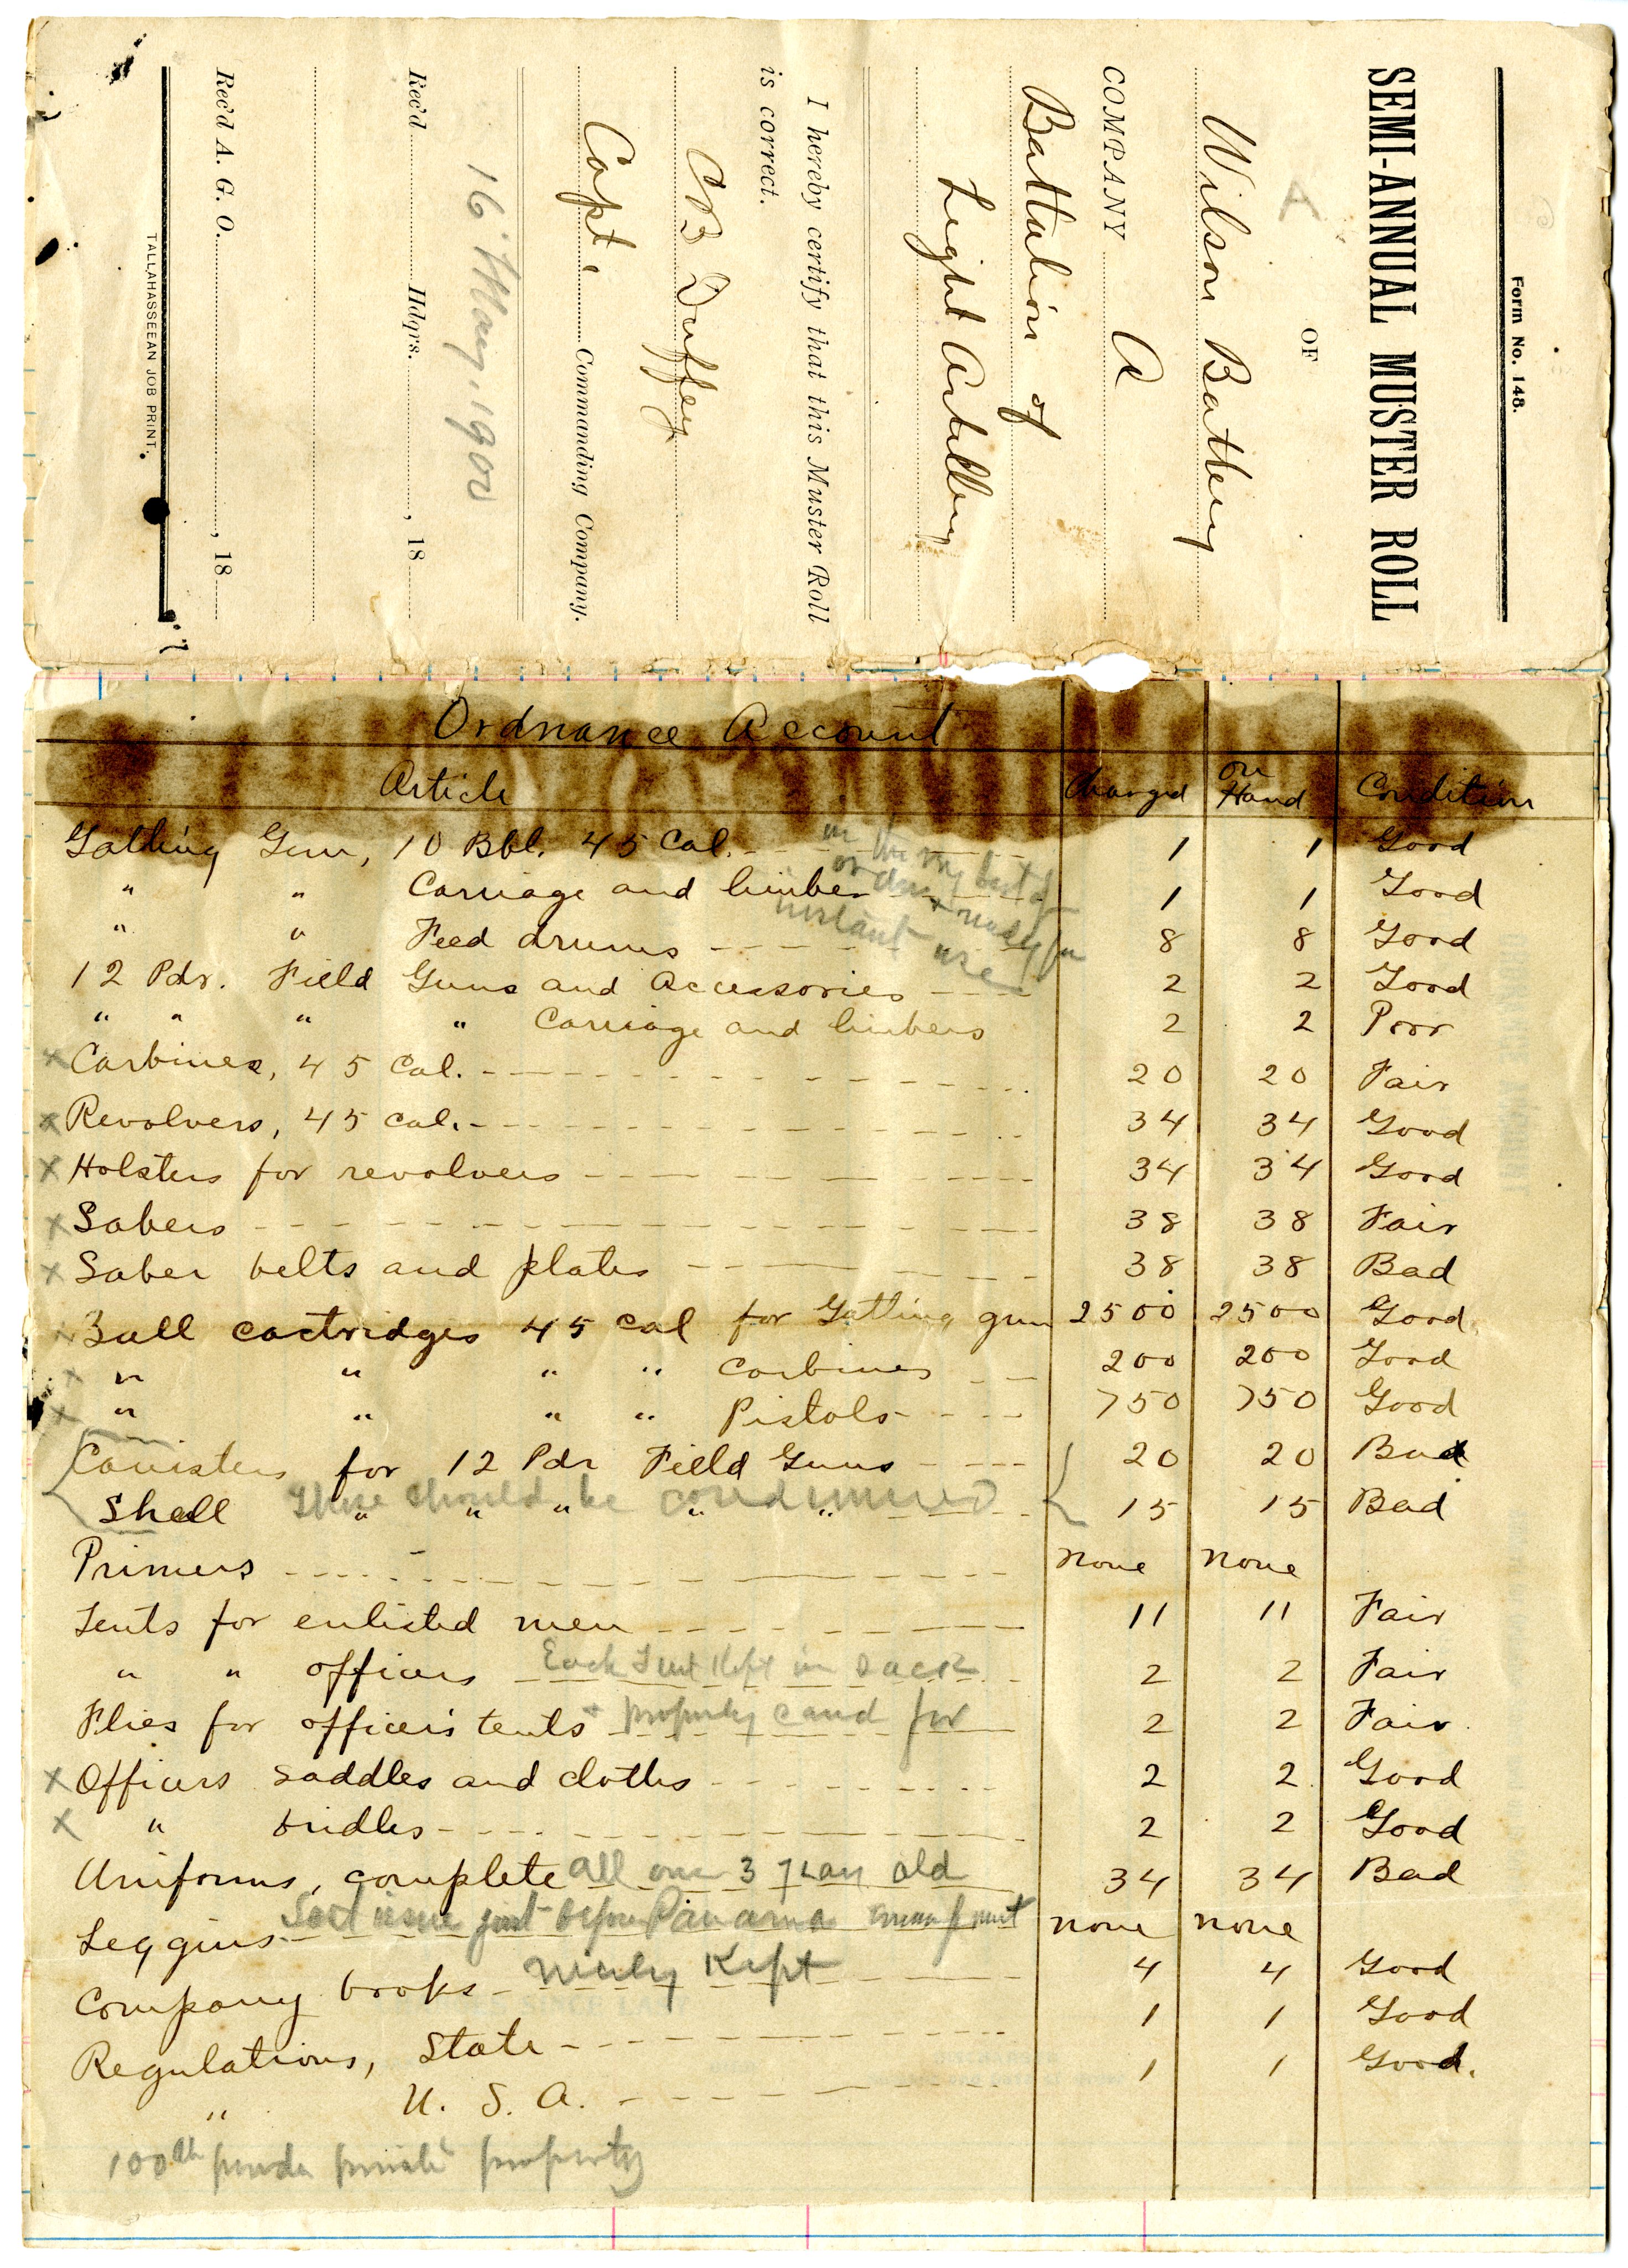 Form No. 148.
SEMI-ANNUAL MUSTER ROLL
OF
A
Wilson Battery
COMPANY A
Battalion of
Light Artillery
I hereby certify that this Muster Roll
is correct.
CB Duffey
Capt. Commanding Company.
16 May, 1900
Rec'd Hdqrs. , 18
Rec'd A. G. O. , 18
TALLAHASSEEAN JOB PRINT.
Ordnance Account
Article Charged on Hand Condition
Gatling Gun, 10 Bbl. 45 Cal. 1 1 Good
in the very best of
order & ready for
instant use
" " Carriage and limber 1 1 Good
" " Feed drums 8 8 Good
12 Pdr. Field Guns and Accessories 2 2 Good
" " " " Carriage and limbers 2 2 Poor
x Carbines, 45 Cal. 20 20 Fair
x Revolvers, 45 Cal. 34 34 Good
x Holsters for revolvers 34 34 Good
x Sabers 38 38 Fair
x Saber belts and plates 38 38 Bad
x Ball cartridges 45 Cal for Gatling gun 2500 2500 Good
x " " " " Carbines 200 200 Good
x " " " " Pistols 750 750 Good
Canisters for 12 Pdr Field Guns 20 20 Bad
Shell " " " " " 15 15 Bad
These should be condemned
Primers none none
Tents for enlisted men 11 11 Fair
" " officers 2 2 Fair
Each Tent Kept in sack
Flies for officer's tents 2 2 Fair
+ properly cared for
x Officers saddles and cloths 2 2 Good
x " bridles 2 2 Good
Uniforms, complete 34 34 Bad
all over 3 years old
Leggins none none
issue just before Panama
Company books 4 4 Good
nicely Kept
Regulations, State 1 1 Good
" U. S. A. 1 1 Good.
100 private property